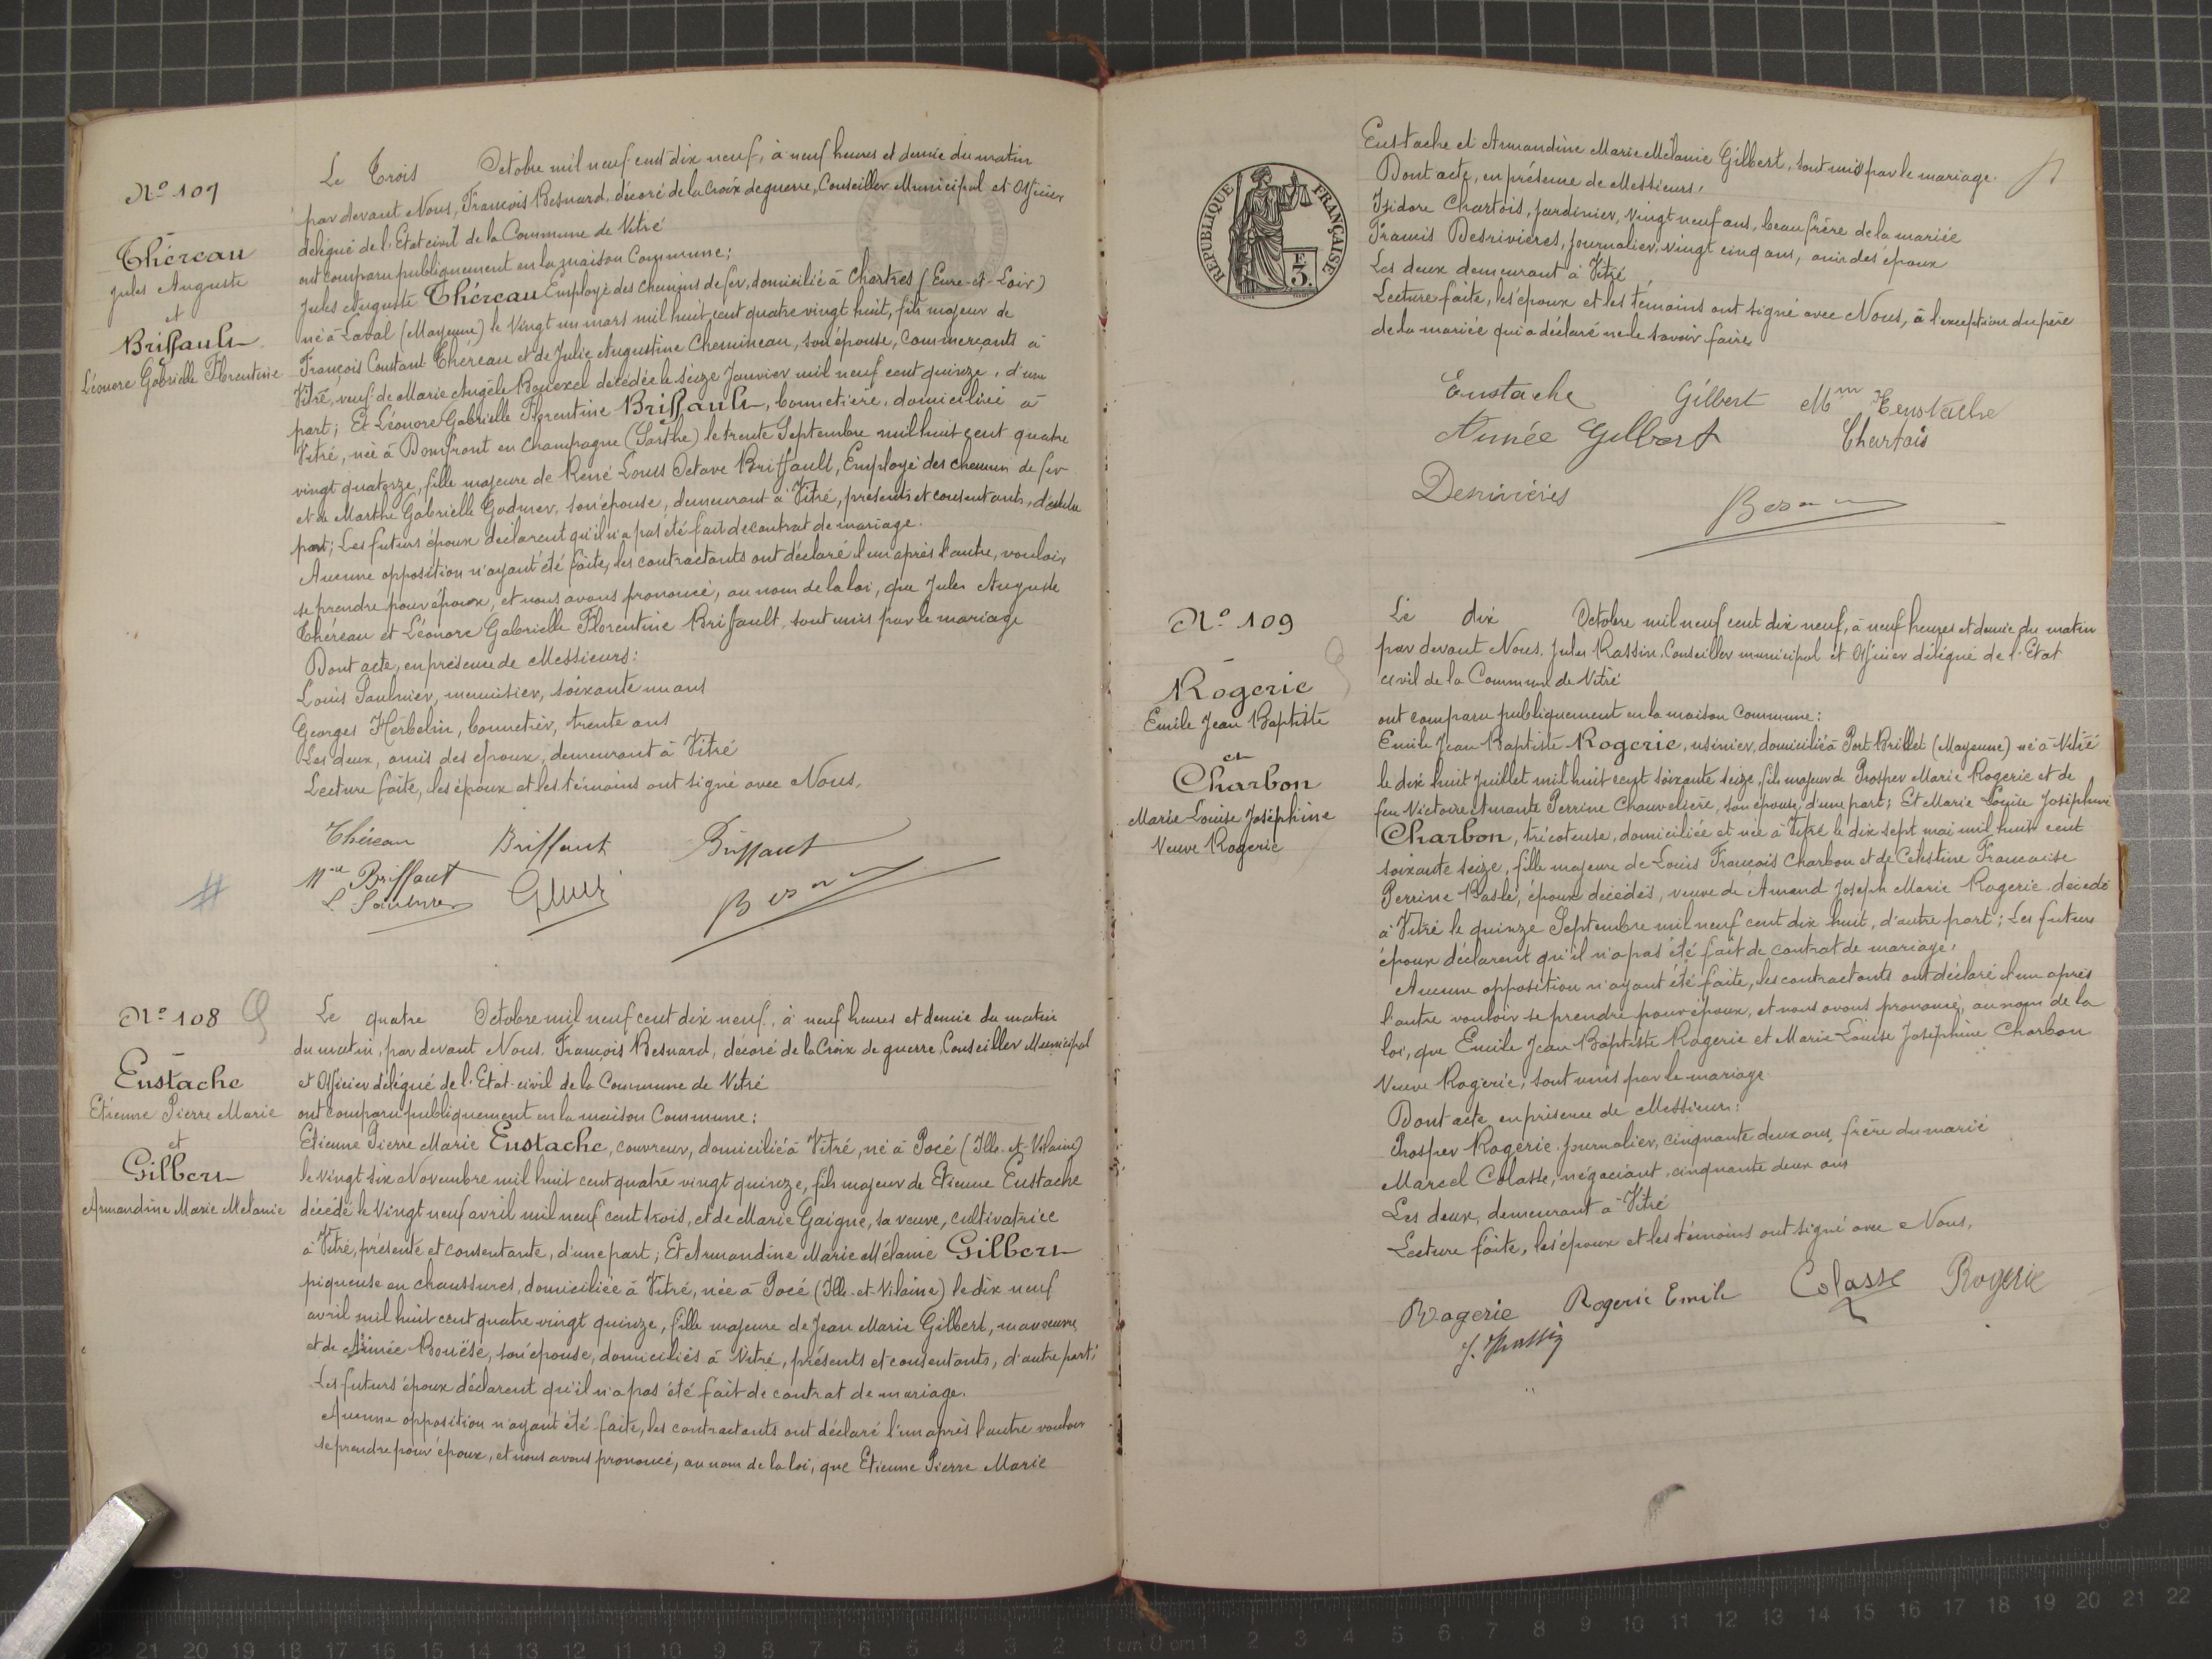 Nº 107
Théreau
Jules Auguste
et
Briffault
Léonore Gabrielle Florentine
Le Trois Octobre mil neuf cent dix neuf, à neuf heures et demie du matin
par devant Nous, François Besnard, décoré de la Croix de guerre, Conseiller Municipal et Officier
délégué de l'Etat civil de la Commune de Vitré
ont comparu publiquement en la maison Commune;
Jules Auguste Théreau Employé des Chemins de fer, domicilié à Chartres (Eure-et-Loir)
né à Laval (Mayenne) le Vingt un mars mil huit cent quatre vingt huit, fils majeur de
François Constant Théreau et de Julie Augustine Chemineau, son épouse, Commerçants à
Vitré, veuf de Marie Angèle Bouexel décédée le Seize Janvier mil neuf cent quinze, d'une
part; Et Léonore Gabrielle Florentine Briffault, bonnetière, domiciliée à
Vitré, née à Domfront en Champagne (Sarthe) le trente Septembre mil huit cent quatre
vingt quatorze, fille majeure de René Louis Octave Briffault, Employé des chemin de fer
et de Marthe Gabrielle Godmer, son épouse, demeurant à Vitré, présents et consentants, d'autre
part; Les futurs époux déclarent qu'il n'a pas été fait de contrat de mariage.
Aucune opposition n'ayant été faite, les contractants ont déclaré l'un après l'autre, vouloir
se prendre pour époux, et nous avons prononcé, au nom de la loi, que Jules Auguste
Théreau et Léonore Gabrielle Florentine Briffault, sont unis par le mariage
Dont acte, en présence de Messieurs:
Louis Saulnier, menuisier, soixante un ans
Georges Herbelin, bonnetier, trente ans
Les deux, amis des époux, demeurant à Vitré
Lecture faite, les époux et les témoins ont signé avec Nous,
Théreau Briffaut Briffaut
Mme Briffaut
L. Saulnier
Nº 108
Eustache
Etienne Pierre Marie
et
Gilbert
Armandine Marie Mélanie
Le quatre Octobre mil neuf cent dix neuf, à neuf heures et demie du matin
du matin, par devant Nous, François Besnard, décoré de la Croix de guerre, Conseiller Municipal
et Officier délégué de l'Etat-civil de la Commune de Vitré
ont comparu publiquement en la maison Commune:
Etienne Pierre Marie Eustache, couvreur, domicilié à Vitré, né à Pocé (Ille-et-Vilaine)
le vingt six Novembre mil huit cent quatre vingt quinze, fils majeur de Etienne Eustache
décédé le Vingt neuf avril mil neuf cent trois, et de Marie Gaigne, sa veuve, cultivatrice
à Vitré, présente et consentante, d'une part; Et Armandine Marie Mélanie Gilbert
piqueuse en chaussures, domiciliée à Vitré, née à Pocé (Ille-et-Vilaine) le dix neuf
avril mil huit cent quatre vingt quinze, fille majeure de Jean Marie Gilbert, manœuvre
et de Aimée Bouëse, son épouse, domiciliés à Vitré, présents et consentants, d'autre part;
Les futurs époux déclarent qu'il n'a pas été fait de contrat de mariage.
Aucune opposition n'ayant été faite, les contractants ont déclaré l'un après l'autre vouloir
se prendre pour époux, et nous avons prononcé, au nom de la loi, que Etienne Pierre Marie
RÉPUBLIQUE FRANÇAISE
F
3.
Eustache et Armandine Marie Mélanie Gilbert, sont unis par le mariage.
Dont acte, en présence de Messieurs,
Isidore Chartois, jardinier, vingt neuf ans, beau frère de la mariée
Francis Desrivières, journalier, vingt cinq ans, ami des époux
Les deux demeurant à Vitré
Lecture faite, les époux et les témoins ont signé avec Nous, à l'exception du père
de la mariée qui a déclaré ne le savoir faire
Eustache Gilbert Mme Eustache
Aimée Gilbert Chartois
Desrivières
Nº 109
Rogerie
Emile Jean Baptiste
et
Charbon
Marie Louise Joséphine
Veuve Rogerie
Le dix Octobre mil neuf cent dix neuf, à neuf heures et demie du matin
par devant Nous, Jules Rassin, Conseiller municipal et Officier délégué de l'Etat
civil de la Commune de Vitré
ont comparu publiquement en la maison Commune:
Emile Jean Baptiste Rogerie, usinier, domicilié à Port-Brillet (Mayenne) né à Vitré
le dix huit Juillet mil huit cent soixante seize, fils majeur de Prosper Marie Rogerie et de
feu Victoire Amante Perrine Chauvelière, son épouse, d'une part; Et Marie Louise Joséphine
Charbon, tricoteuse, domiciliée et née à Vitré le dix sept mai mil huit cent
soixante seize, fille majeure de Louis François Charbon et de Célestine Françoise
Perrine Baslé, époux décédés, veuve de Amand Joseph Marie Rogerie, décédé
à Vitré le quinze Septembre mil neuf cent dix huit, d'autre part; Les futurs
époux déclarent qu'il n'a pas été fait de contrat de mariage.
Aucune opposition n'ayant été faite, les contractants ont déclaré l'un après
l'autre vouloir se prendre pour époux, et nous avons prononcé, au nom de la
loi, que Emile Jean Baptiste Rogerie et Marie Louise Joséphine Charbon
Veuve Rogerie, sont unis par le mariage.
Dont acte en présence de Messieurs:
Prosper Rogerie, journalier, cinquante deux ans, frère du marié
Marcel Colasse, négociant, cinquante deux ans
Les deux, demeurant à Vitré
Lecture faite, les époux et les témoins ont signé avec Nous,
Rogerie Rogerie Emile Colasse Rogerie
J. Rassin
22 21 20 19 18 17 16 15 14 13 12 11 10 9 8 7 6 5 4 3 2 1 cm 0 cm 1 2 3 4 5 6 7 8 9 10 11 12 13 14 15 16 17 18 19 20 21 22